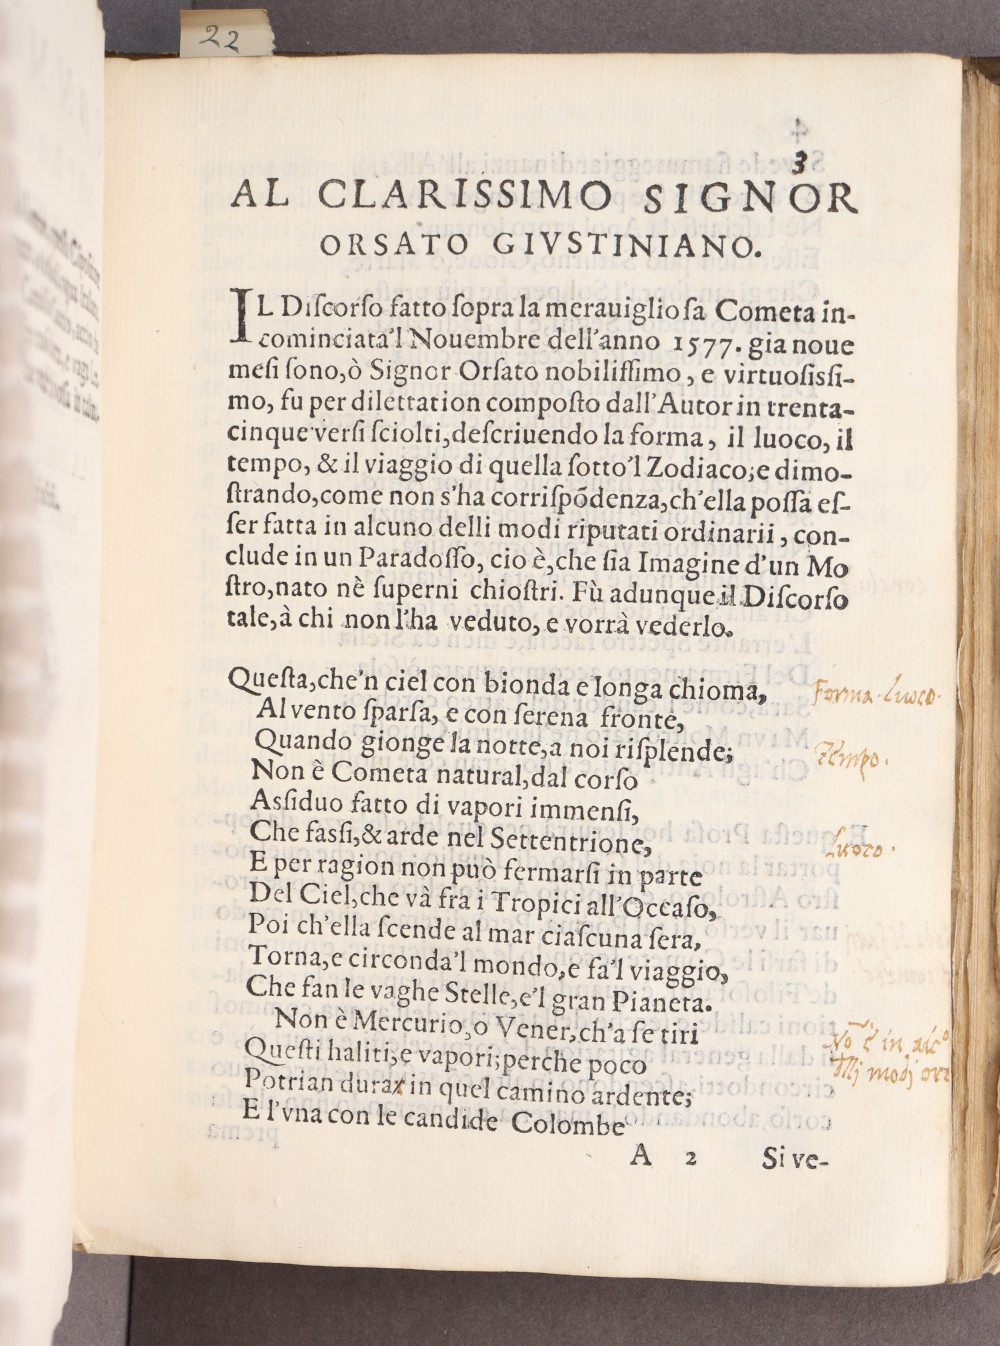 22
3
AL CLARISSIMO SIGNOR
ORSATO GIVSTINIANO.
IL Diſcorſo fatto ſopra la merauiglioſa Cometa in-
cominciata'l Nouembre dell'anno 1577. gia noue
meſi ſono, ò Signor Orſato nobiliſſimo, e virtuoſisſi-
mo, fu per dilettation compoſto dall'Autor in trenta-
cinque verſi ſciolti, deſcriuendo la forma, il luoco, il
tempo, & il viaggio di quella ſotto'l Zodiaco; e dimo-
ſtrando, come non s'ha corriſpõdenza, ch'ella poſſa eſ-
ſer fatta in alcuno delli modi riputati ordinarii, con-
clude in un Paradoſſo, cio è, che ſia Imagine d'un Mo
ſtro, nato nè ſuperni chioſtri. Fù adunque il Diſcorſo
tale, à chi non l'ha veduto, e vorrà vederlo.
Queſta, che'n ciel con bionda e longa chioma,
Forma. Luoco.
Al vento ſparſa, e con ſerena fronte,
Quando gionge la notte, a noi riſplende;
Tempo.
Non è Cometa natural, dal corſo
Asſiduo fatto di vapori immenſi,
Che fasſi, & arde nel Settentrione,
Luoco.
E per ragion non può fermarſi in parte
Del Ciel, che và fra i Tropici all'Occaſo,
Poi ch'ella ſcende al mar ciaſcuna ſera,
Torna, e circonda'l mondo, e fa'l viaggio,
Che fan le vaghe Stelle, e'l gran Pianeta.
Non è Mercurio, o Vener, ch'a ſe tiri
Nõ è in alc°
Queſti haliti, e vapori; perche poco
modi
Potrian durar in quel camino ardente;
E l'vna con le candide Colombe
A 2
Si ve-